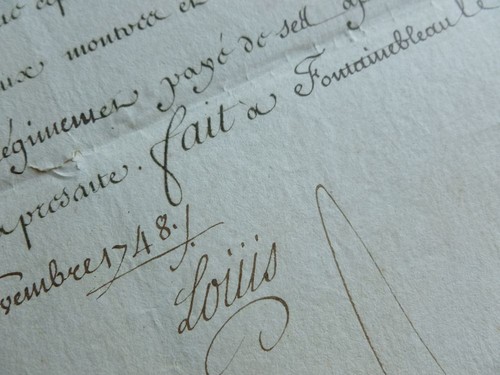 montrea et
Régimenen payé de sell
apresaite. fait a Fontainebleau le
novembre 1748./.
Louis